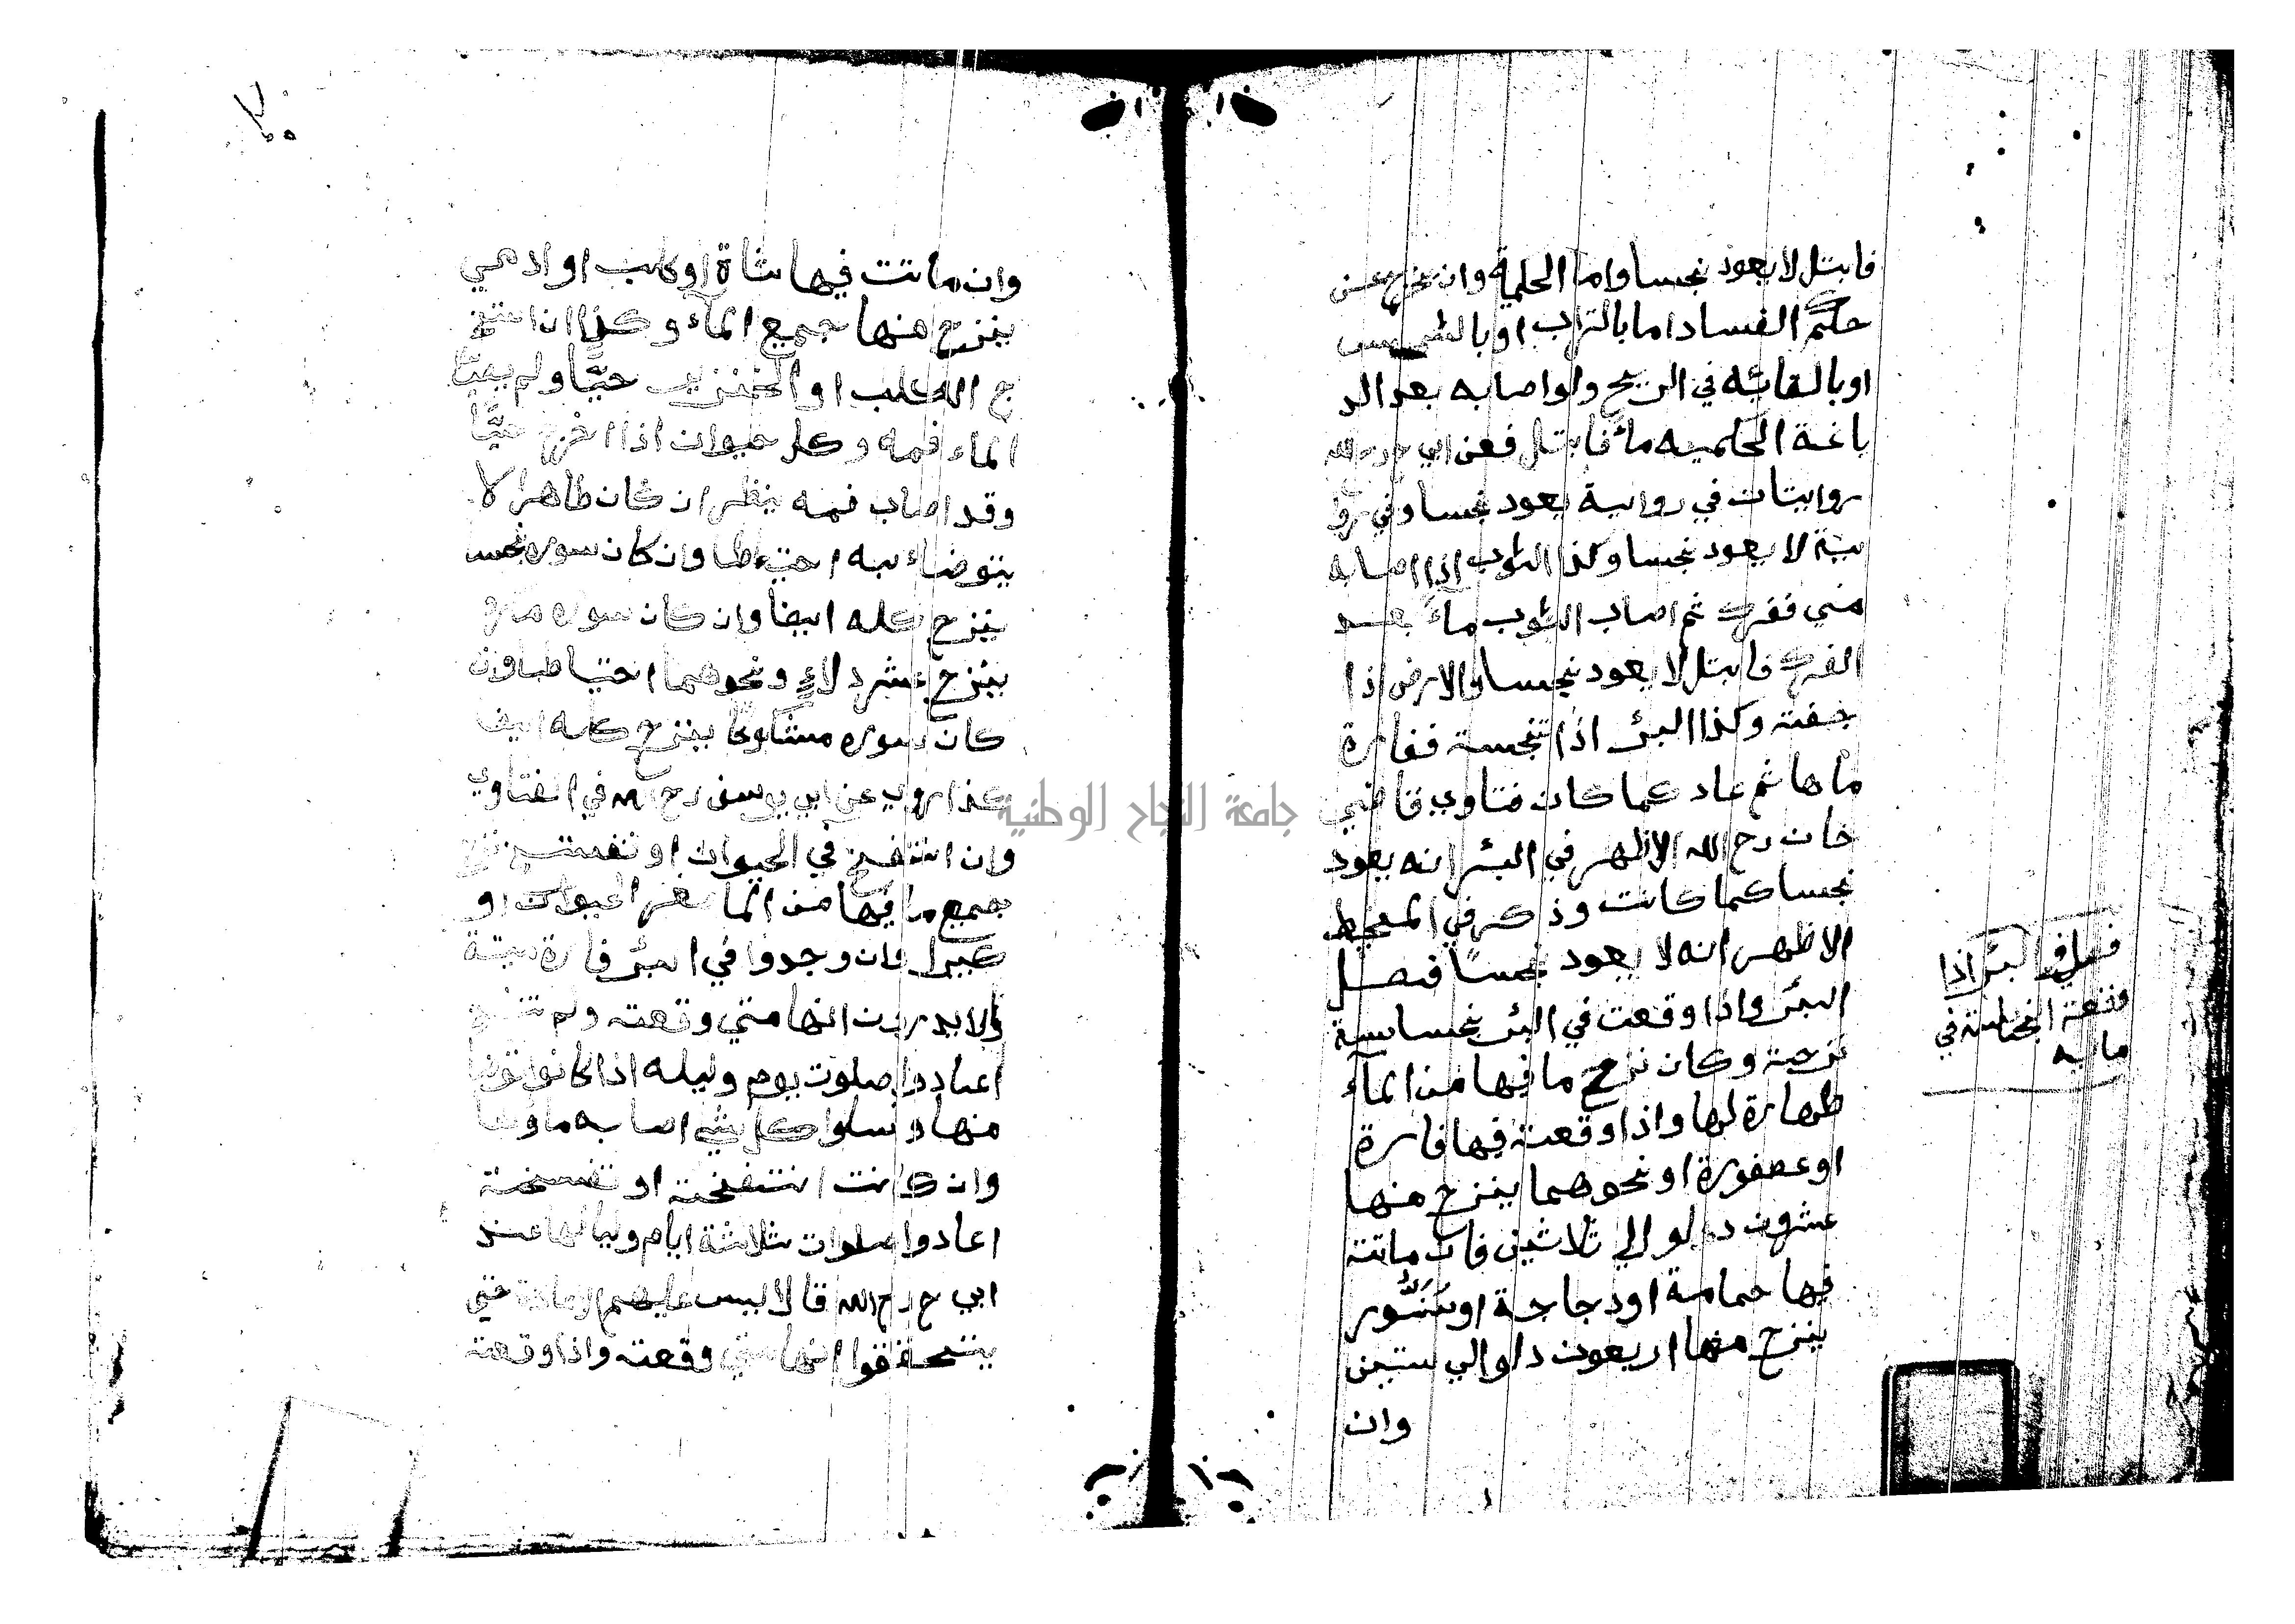 فابتل لا يعود نجسا واما الحكمية وان يخرج عن
حكم الفساد اما بالتراب او بالتشميس
او بالقائه في الريح ولو اصابه بعد الد
باغة الحكميه ماء فابتل فعن ابي ح رح الله
روايتان في رواية يعود نجسا وفي روا
ية لا يعود نجسا وكذا الثوب اذا اصابه
مني ففرك ثم اصاب الثوب ماء بعد
الفرك فابتل لا يعود نجسا والارض اذا
جفت وكذا البئر اذا تنجست ففارة
ماها ثم عاد كما كان فتاوي قاضي
خان رح الله الاظهر في البئر انه يعود
نجسا كما كانت وذكر في المحيط
الاظهر انه لا يعود نجسا فصل
البئر واذا وقعت في البئر نجساسة
نزحت وكان نزح ما فيها من الماء
طهارة لها واذا وقعت فيها فارة
او عصفورة او نحوهما ينزح منها
عشرون دلو الي ثلاثين فان ماتت
فيها حمامة او دجاجة او سنور
ينزح منها اربعون دلو الي ستين
وان
فصل في البئر اذا
وقعة النجاسة في
مايه
وان ماتت فيها شاة او كلب او ادمي
ينزح منها جميع الماء وكذا ان استخر
ج الكلب او الخنزير حيا ولم يصب
الماء فمه وكل حيوان اذا اخرج حيا
وقد اصاب فمه ينظر ان كان طاهرا لا
يتوضاء به احتياطا وان كان سوره نجسا
ينزح كله ايضا وان كان سوره مكروه
ينزح عشر دلاء ونحوهما احتياطا وان
كان سوره مشكوكا ينزح كله ايضا
كذا روي عن ابي يوسف رح الله في الفتاوي
وان انتفخ في الحيوان او تفسخ نزح
جميع ما فيها من الما صغر الحيوان او
كبرا وان وجدوا في البئر فارة ميتة
ولا يدرون انها متي وقعت ولم تنتفخ
اعادوا صلوت يوم وليله اذا كانوا توضا
منها وغسلوا كل شي اصابه ماوها
وان كانت انتفخت او تفسخت
اعادوا صلوات ثلاثة ايام ولياليها عند
ابي ح رح الله قالا ليس عليهم الاعادة حتي
يتحققوا انها متي وقعت واذا وقعت
جامعة النجاح الوطنية